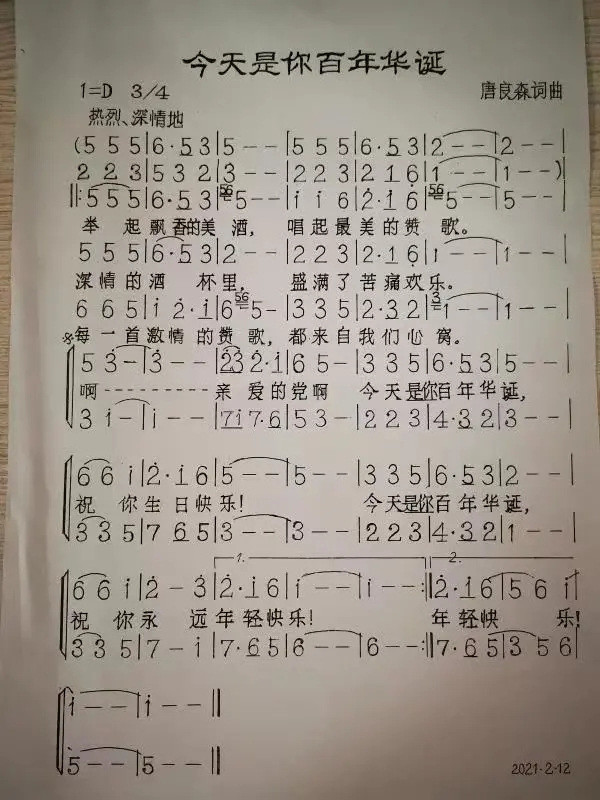 今天是你百年华诞
1=D 3/4 唐良森词曲
热烈、深情地
(5 5 5|6·5 3|5 - -|5 5 5|6·5 3|2 - -|2 - -|
2 2 3|5 3 2|3 - -|2 2 3|2 1 6|1 - -|1 - -)
‖:5 5 5|6·5 3|56 5 - -|i i 6|2·i 6|56 5 - -|5 - -|
举 起飘香的美 酒, 唱起最美的赞 歌。
5 5 5|6·5 3|2 - -|2 2 3|2·1 6|1 - -|1 - -|
深情的酒 杯里, 盛满了苦痛欢乐。
6 6 5|i 2·i|6 56 5 -|3 3 5|2·3 2|3 1 - -|1 - -|
※每一首激情的赞歌,都来自我们心窝。
5 3 -|3 - -|23 2·i|6 5 -|3 3 5|6·5 3|2 - -|
啊- - - - - - - - -亲爱的党啊 今天是你百年华诞,
3 i -|i - -|7i 7·6|5 3 -|2 2 3|4·3 2|1 - -|
6 6 i|2·i 6|5 - -|5 - -|3 3 5|6·5 3|2 - -|
祝 你生日快乐! 今天是你百年华诞,
3 3 5|7 6 5|3 - -|3 - -|2 2 3|4·3 2|1 - -|
1. 2.
6 6 i|2 - 3|2·i 6|i - -|i - -:‖2·i 6|5 6 i|
祝 你永 远年轻快乐! 年轻快 乐!
3 3 5|7 - i|7·6 5|6 - -|6 - -:‖7·6 5|3 5 6|
i - -|i - -‖
5 - -|5 - -‖
2021·2·12